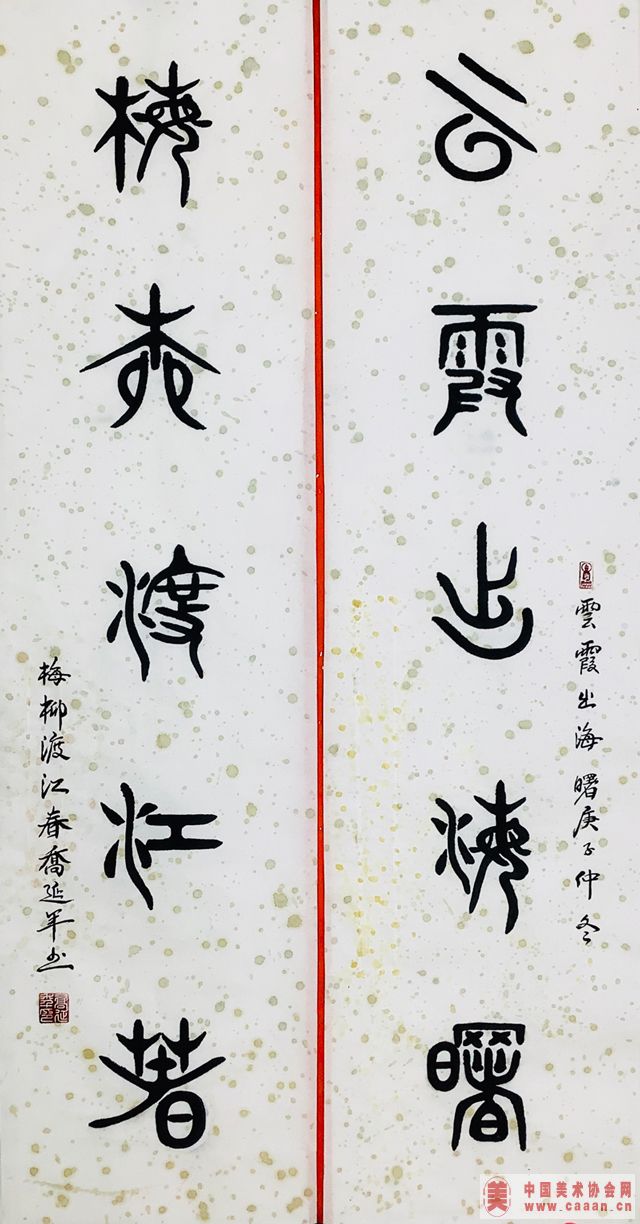 云霞出海曙
雲霞出海曙庚子仲冬
梅柳渡江春
梅柳渡江春喬延军书
中国美术协会网
www.caaan.cn